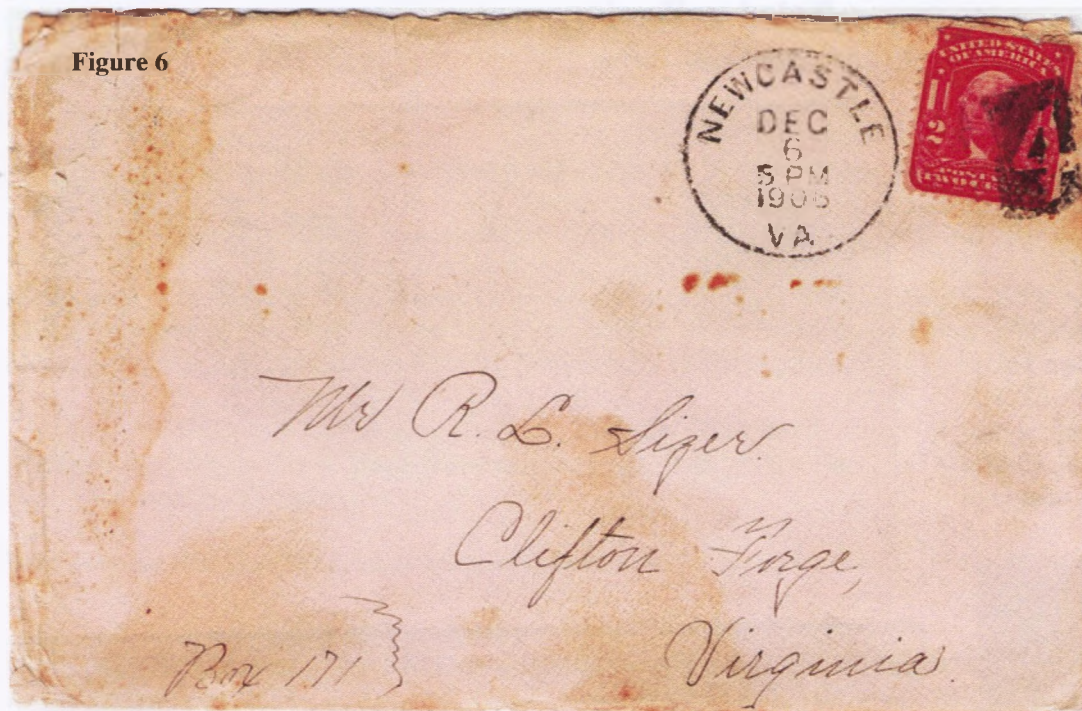 Figure 6
NEWCASTLE
DEC
6
5 PM
1906
VA
UNITED STATES
OF AMERICA
2
Mr R. L. Sizer.
Clifton Forge,
Virginia.
Box 171